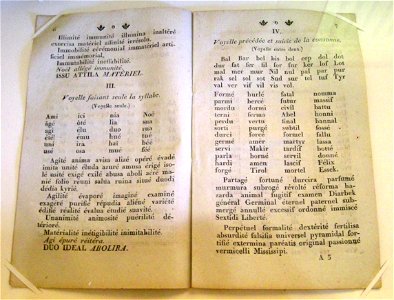 Illimité immunité illumina inaltéré
exercice matériel alinité irrésolu.
Immobilité cérémonial immatériel arti,
ficiel immémorial,
Immutabilité inefabilité.
Noël allégé immunité.
ISSU ATTILA MATÉRIEL.
III.
Voyelle faisant seule la syllabe.
(Voyelle seule.)
Ami ici nia Noé
âgé été lia sua
agi élu duo rua
élé ému hué tué
uni ira haï béé
une uri api
Agité anima avisa alité opéré évadé
imita unité éluda acuré amusa érigé iso-
lé noté exigé exilé abusa aboli acéré ma-
nié folio réuni salua ruina situé duodi
dédia kyrié.
Agilité évaporé imaginé examiné
exagéré purifié répudia aliéné variété
édifié réalité évalua étudié suavité.
Unanimité animosité puérilité dé-
térioré.
Matérialité inéligibilité inimitabilité.
Agi épuré réitéra.
DUO IDÉAL ABOLIRA.
IV.
Voyelle précédée et suivie de la consonne.
(Voyelle entre deux.)
Bal Bar bel bis bol cep dol dot
duc fat fer fil for fur ker lof Lot
mal mer mur Nil nul pal par pur
rak sel sol sot Sud sur tel tuf Tyr
val ver vif vil vis vol.
Formé hurlé fatal nomma
parmi bercé futur massif
mordu dormi civil battu
terni ferma Abel honni
perdu vertu final hannal
sorti purgé subtil fossé
durci forcé formel fallu
germé amer martyr lassa
servi Makir tardif botté
parla borné servil donné
hardi amen lascif Félix
forgé Tirol mortel Essek.
Partagé fortuné durcira parfumé
murmura subrogé révolté réforma ha-
zarda animal fugitif examen Diarbek
général Germinal éternel paternel sub-
mergé annulle excessif ordonné immiscé
Sextidi Liberté.
Perpétuel formalité dextérité fertilisa
absurdité falisia universel pyramidal for-
tifié extermina paréatis original passionné
vermicelli Mississipi.
A 3